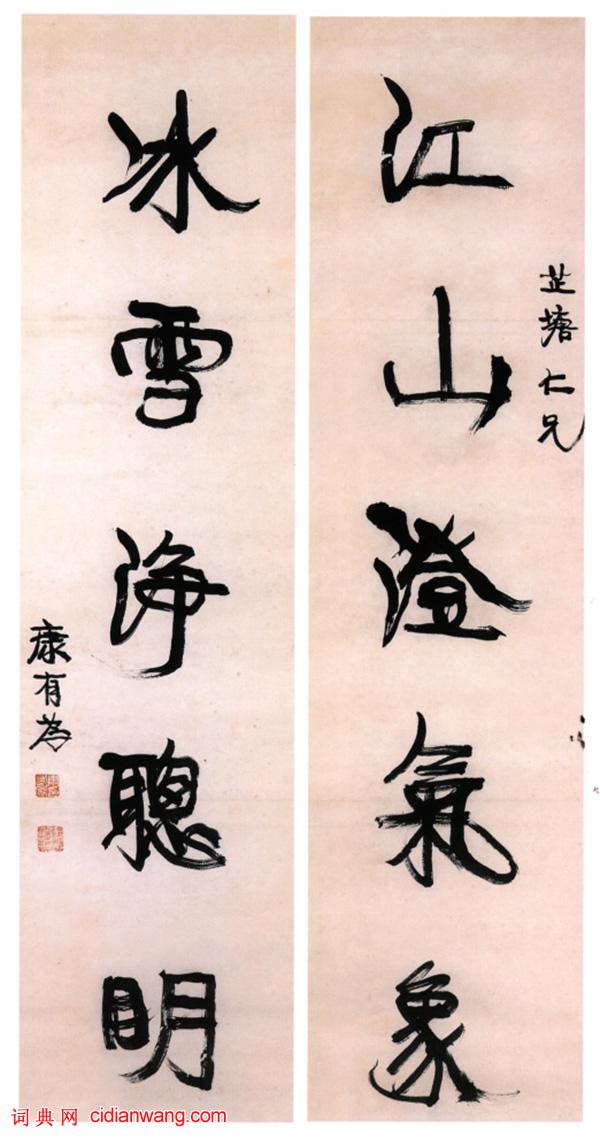 芷塘仁兄
江山澄氣象
冰雪淨聰明
康有為
词典网 cidianwang.com